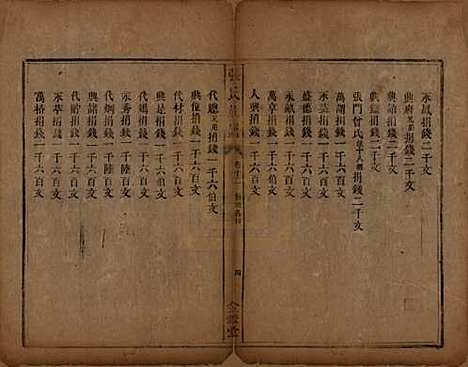 永鳳捐錢二千文
興鹿兄弟捐錢二千文
興詩捐錢二千文
興鎧捐錢二千文
張門曾氏捐錢二千文
萬朝捐錢一千六百文
永英捐錢一千六百文
永獻捐錢一千六百文
盛德捐錢一千六百文
萬章捐錢一千六百文
人興捐錢一千六百文
張氏
四
金鑑堂
代聰兄弟捐錢一千六伯文
興儻捐錢一千六百文
代材捐錢一千六百文
代錫捐錢一千六百文
永秀捐錢一千陸百文
興緒捐錢一千陸百文
代炳捐錢一千六百文
代貯捐錢一千六百文
永萃捐錢一千六百文
萬榜捐錢一千六百文